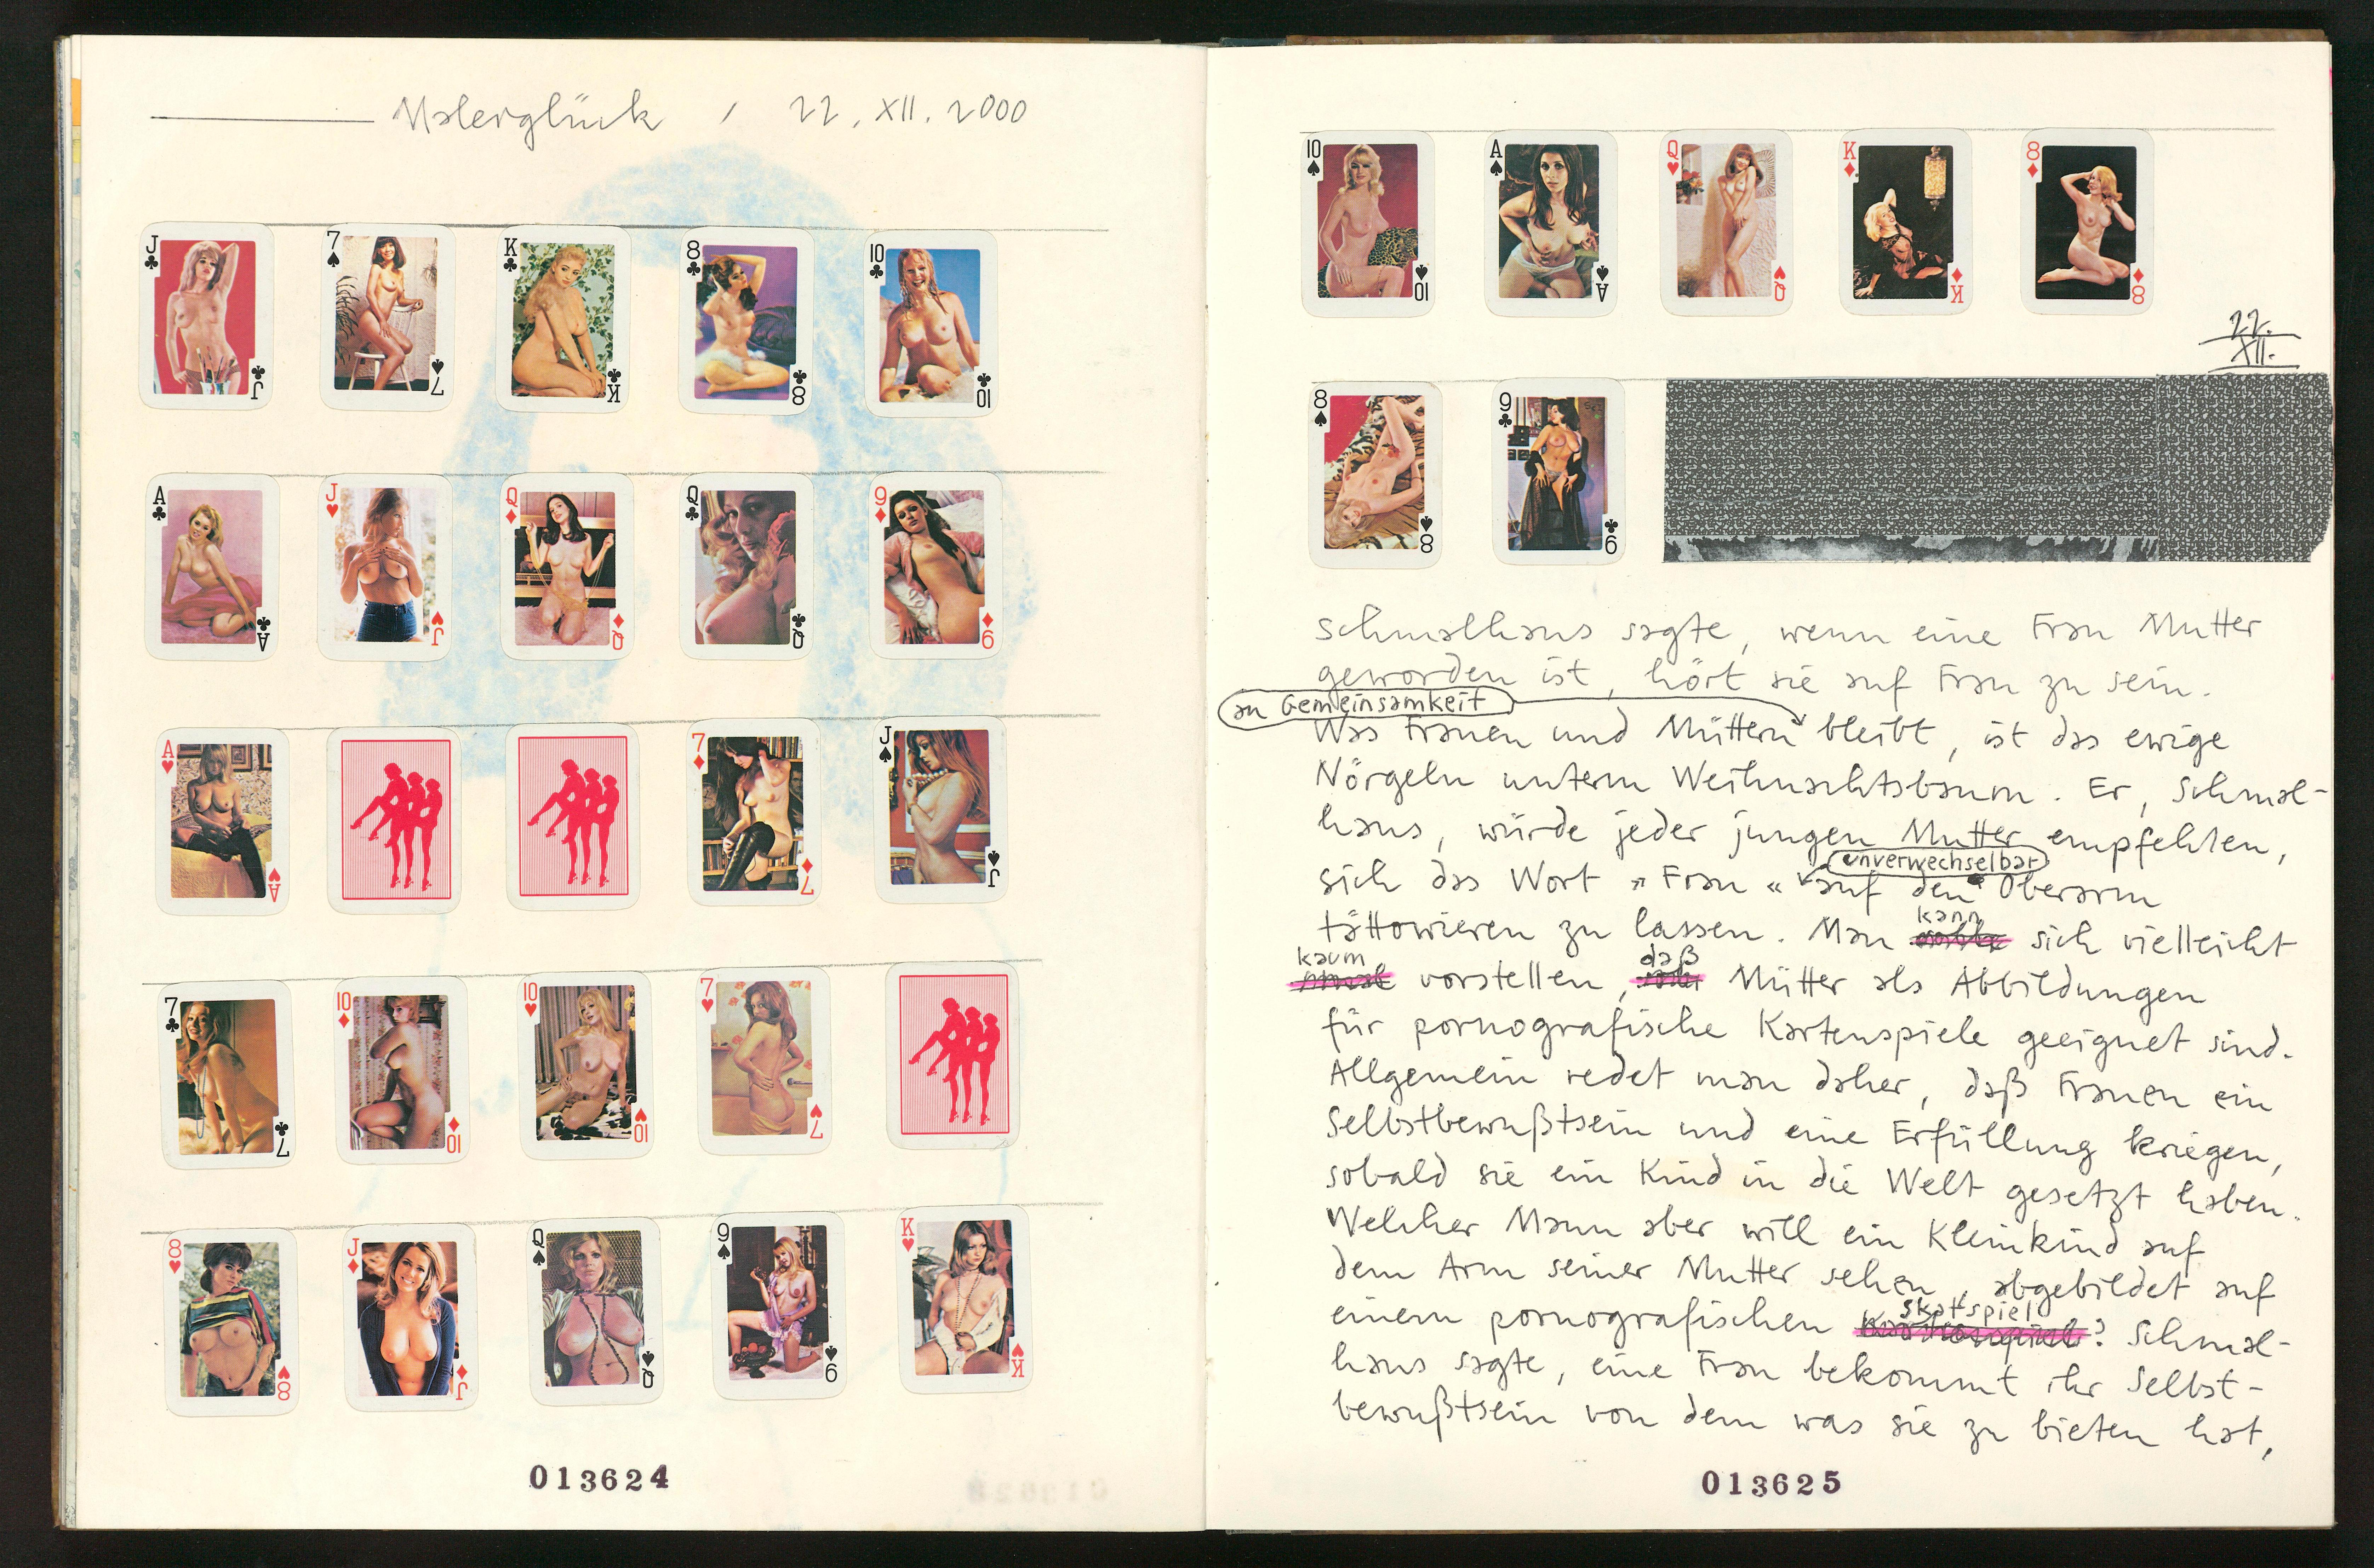 Malerglück , 22. XII. 2000
J♣ 7♠ K♣ 8♣ 10♣
A♣ J♥ Q♦ Q♣ 9♦
A♥ 7♦ J♠
7♣ 10♦ 10♥ 7♥
8♥ J♦ Q♠ 9♠ K♥
013624
10♠ A♠ Q♥ K♦ 8♦
22.
XII.
8♠ 9♣
Schmalhans sagte, wenn eine Frau Mutter
geworden ist, hört sie auf Frau zu sein.
an Gemeinsamkeit
Was Frauen und Müttern bleibt, ist das ewige
Nörgeln unterm Weihnachtsbaum. Er, Schmal-
hans, würde jeder jungen Mutter empfehlen,
unverwechselbar
sich das Wort »Frau« auf den Oberarm
tättowieren zu lassen. Man kann sich vielleicht
kaum vorstellen, daß Mütter als Abbildungen
für pornografische Kartenspiele geeignet sind.
Allgemein redet man daher, daß Frauen ein
Selbstbewußtsein und eine Erfüllung kriegen,
sobald sie ein Kind in die Welt gesetzt haben.
Welcher Mann aber will ein Kleinkind auf
dem Arm seiner Mutter sehen, abgebildet auf
einem pornografischen Skatspiel? Schmal-
hans sagte, eine Frau bekommt ihr Selbst-
bewußtsein von dem was sie zu bieten hat,
013625